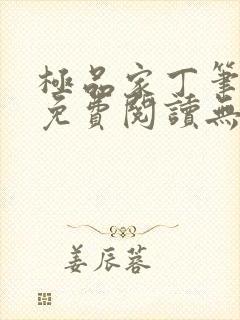 極品家丁筆
免費閱讀無
姜辰蓉